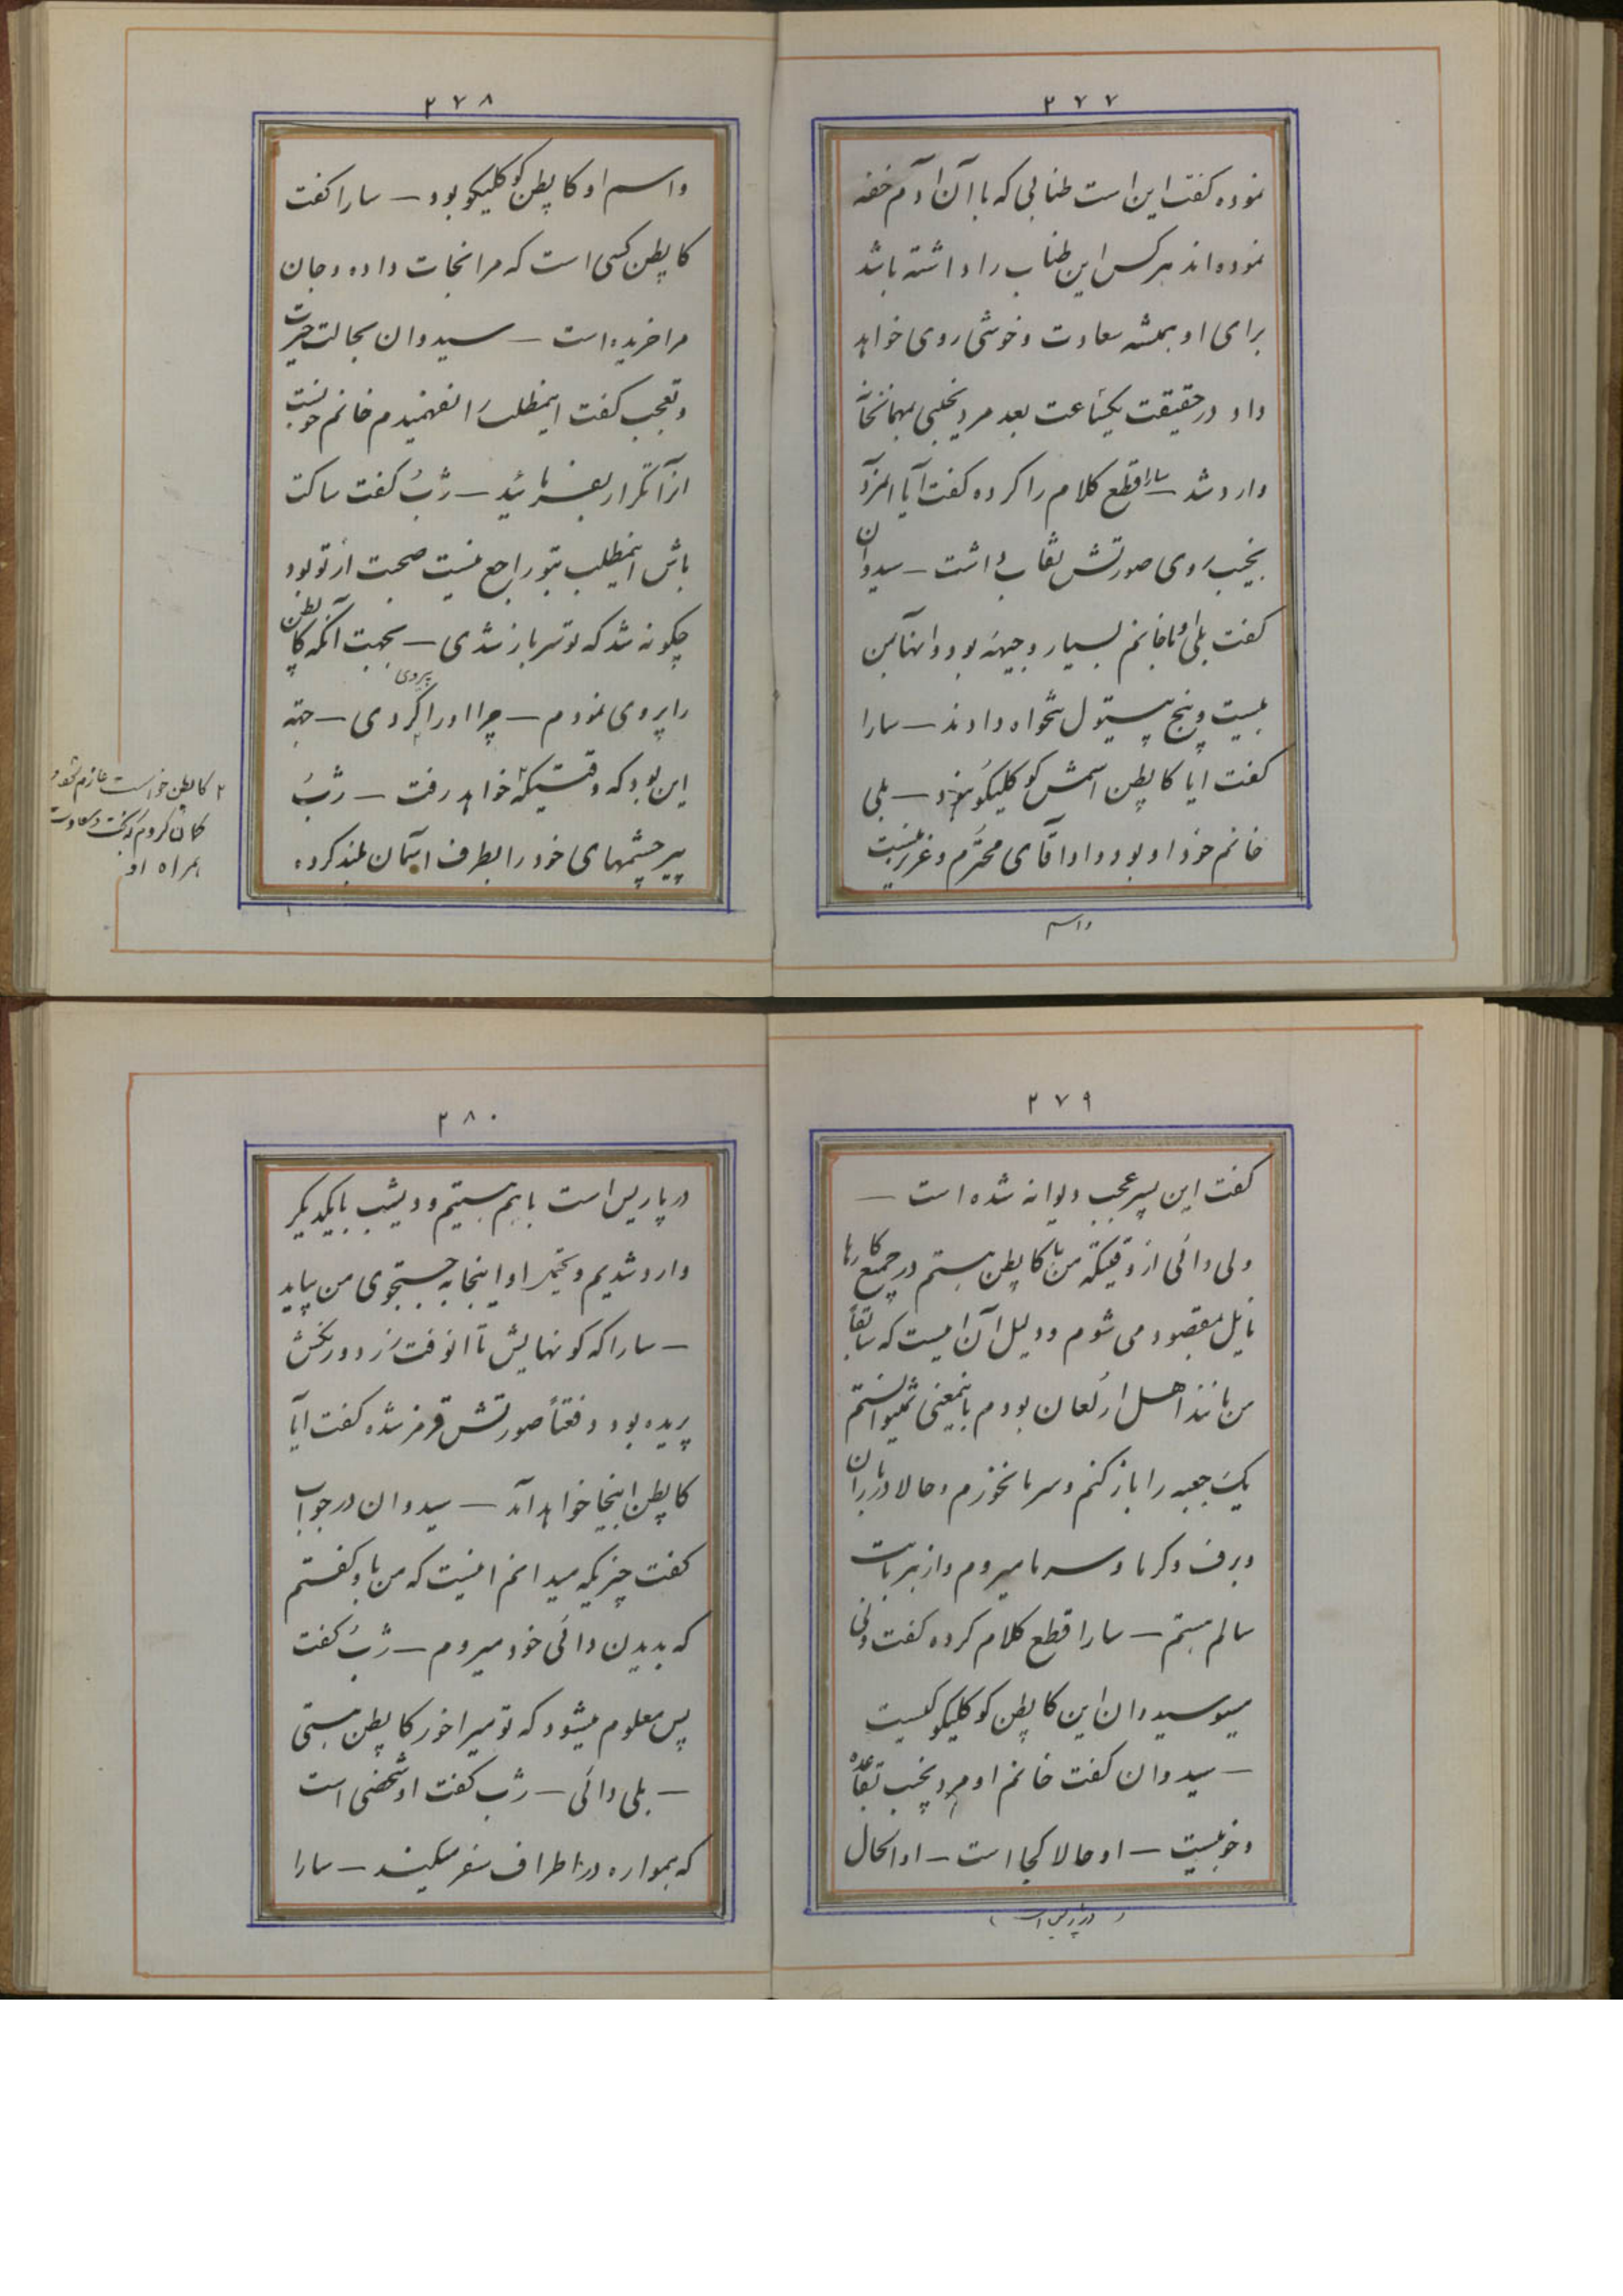 ۲۷۷
نموده گفت این است طنابی که با آن آدم خفه
نموده‌اند هر کس این طناب را داشته باشد
برای او همیشه سعادت و خوشی روی خواهد
داد در حقیقت یکساعت بعد مرد نجیبی بمهمانخانه
وارد شد — سارا قطع کلام را کرده گفت آیا المرد
نجیب بروی صورتش نقاب داشت — سیدوان
گفت بلی اما خانم بسیار وجیهه بود و انها بمن
بیست و پنج پیستول تنخواه دادند — سارا
گفت ایا کاپطن اسمش کوکلیکو نبود — بلی
خانم خود او بود و او آقای محترم و عزیزیست
واسم
۲۷۸
واسم او کاپطن کوکلیکو بود — سارا گفت
کاپطن کسی است که مرا نجات داده و جان
مرا خریده است — سیدوان بحالت حیرت
و تعجب گفت اینمطلب را نفهمیدم خانم خوبست
از آ تکرار بفرمائید — ژب گفت ساکت
باش اینمطلب بتو راجع نیست صحبت از تو بود
چگونه شد که تو سرباز شدی — بجهت آنکه کاپطن
را پیروی نمودم — چرا او را پیروی کردی — جهة
این بود که وقتیکه ۲ خواهد رفت — ژب
پیر چشمهای خود را بطرف اسمان بلند کرده
۲ کاپطن خواست عازم شود
گمان کردم که بخت و سعادت
همراه او
۲۷۹
گفت این پسر عجب دیوانه شده است —
ولی دائی از وقتیکه من با کاپطن هستم در جمیع کارها
نایل بمقصود می شوم و دلیل آن اینست که سابقاً
من مانند اهل ارلعان بودم باینمعنی نمیتوانستم
یک جعبه را باز کنم و سرما نخورم و حالا در باران
و برف و گرما و سرما میروم و از هر بابت
سالم هستم — سارا قطع کلام کرده گفت ولی
میسو سیدوان این کاپطن کوکلیکو کیست
— سیدوان گفت خانم او مرد نجیب بقاعده
و خوبیست — او حالا کجا است — او الحال
(در پاریس است)
۲۸۰
در پاریس است با هم هستیم و دیشب بایکدیگر
وارد شدیم و او اینجا به جستجوی من بیاید
— سارا که گونهایش تا انوقت زرد و رنگش
پریده بود دفعتاً صورتش قرمز شده گفت آیا
کاپطن اینجا خواهد آمد — سیدوان در جواب
گفت چیزیکه میدانم اینست که من باو گفتم
که بدیدن دائی خود میروم — ژب گفت
پس معلوم میشود که تو میراخور کاپطن هستی
— بلی دائی — ژب گفت او شخصی است
که همواره در اطراف سفر میکند — سارا